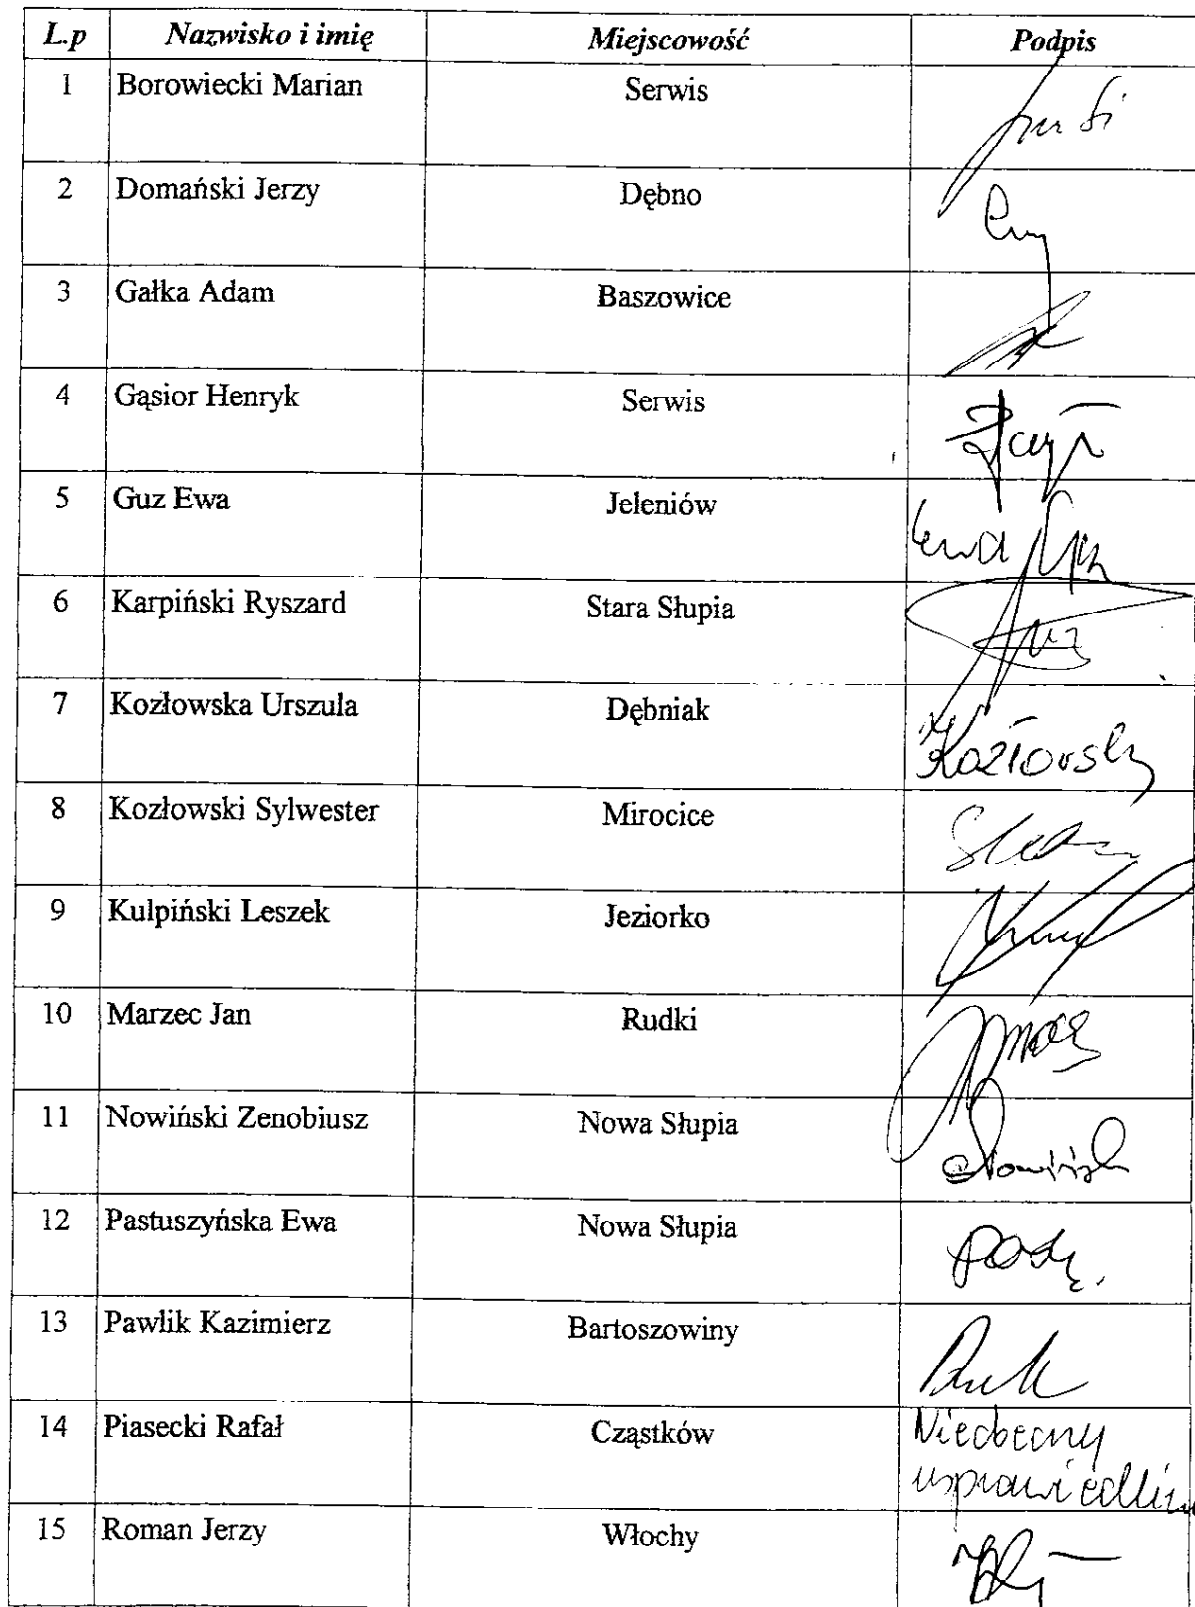 L.p Nazwisko i imię Miejscowość Podpis
1 Borowiecki Marian Serwis
2 Domański Jerzy Dębno
3 Gałka Adam Baszowice
4 Gąsior Henryk Serwis
5 Guz Ewa Jeleniów Ewa Guz
6 Karpiński Ryszard Stara Słupia
7 Kozłowska Urszula Dębniak
8 Kozłowski Sylwester Mirocice
9 Kulpiński Leszek Jeziorko
10 Marzec Jan Rudki
11 Nowiński Zenobiusz Nowa Słupia
12 Pastuszyńska Ewa Nowa Słupia
13 Pawlik Kazimierz Bartoszowiny
14 Piasecki Rafał Cząstków Nieobecny
15 Roman Jerzy Włochy